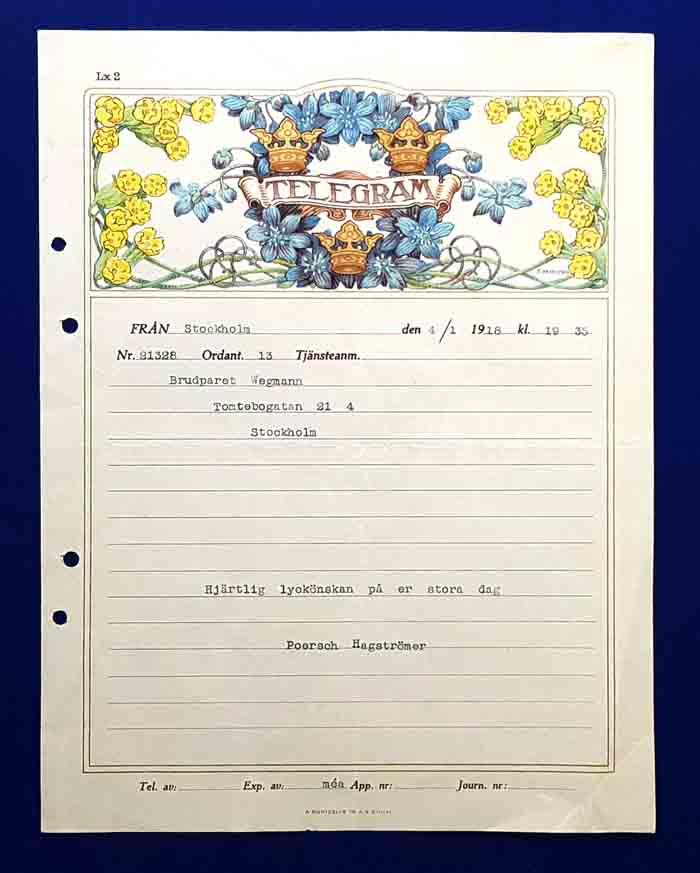 Lx 2
TELEGRAM
FRÅN Stockholm den 4/1 1918 kl. 19 35
Nr. 21328 Ordant. 13 Tjänsteanm.
Brudparet Wegmann
Tomtebogatan 21 4
Stockholm
Hjärtlig lyokönskan på er stora dag
Poersch Hagströmer
Tel. av: Exp. av: méa App. nr: Journ. nr: